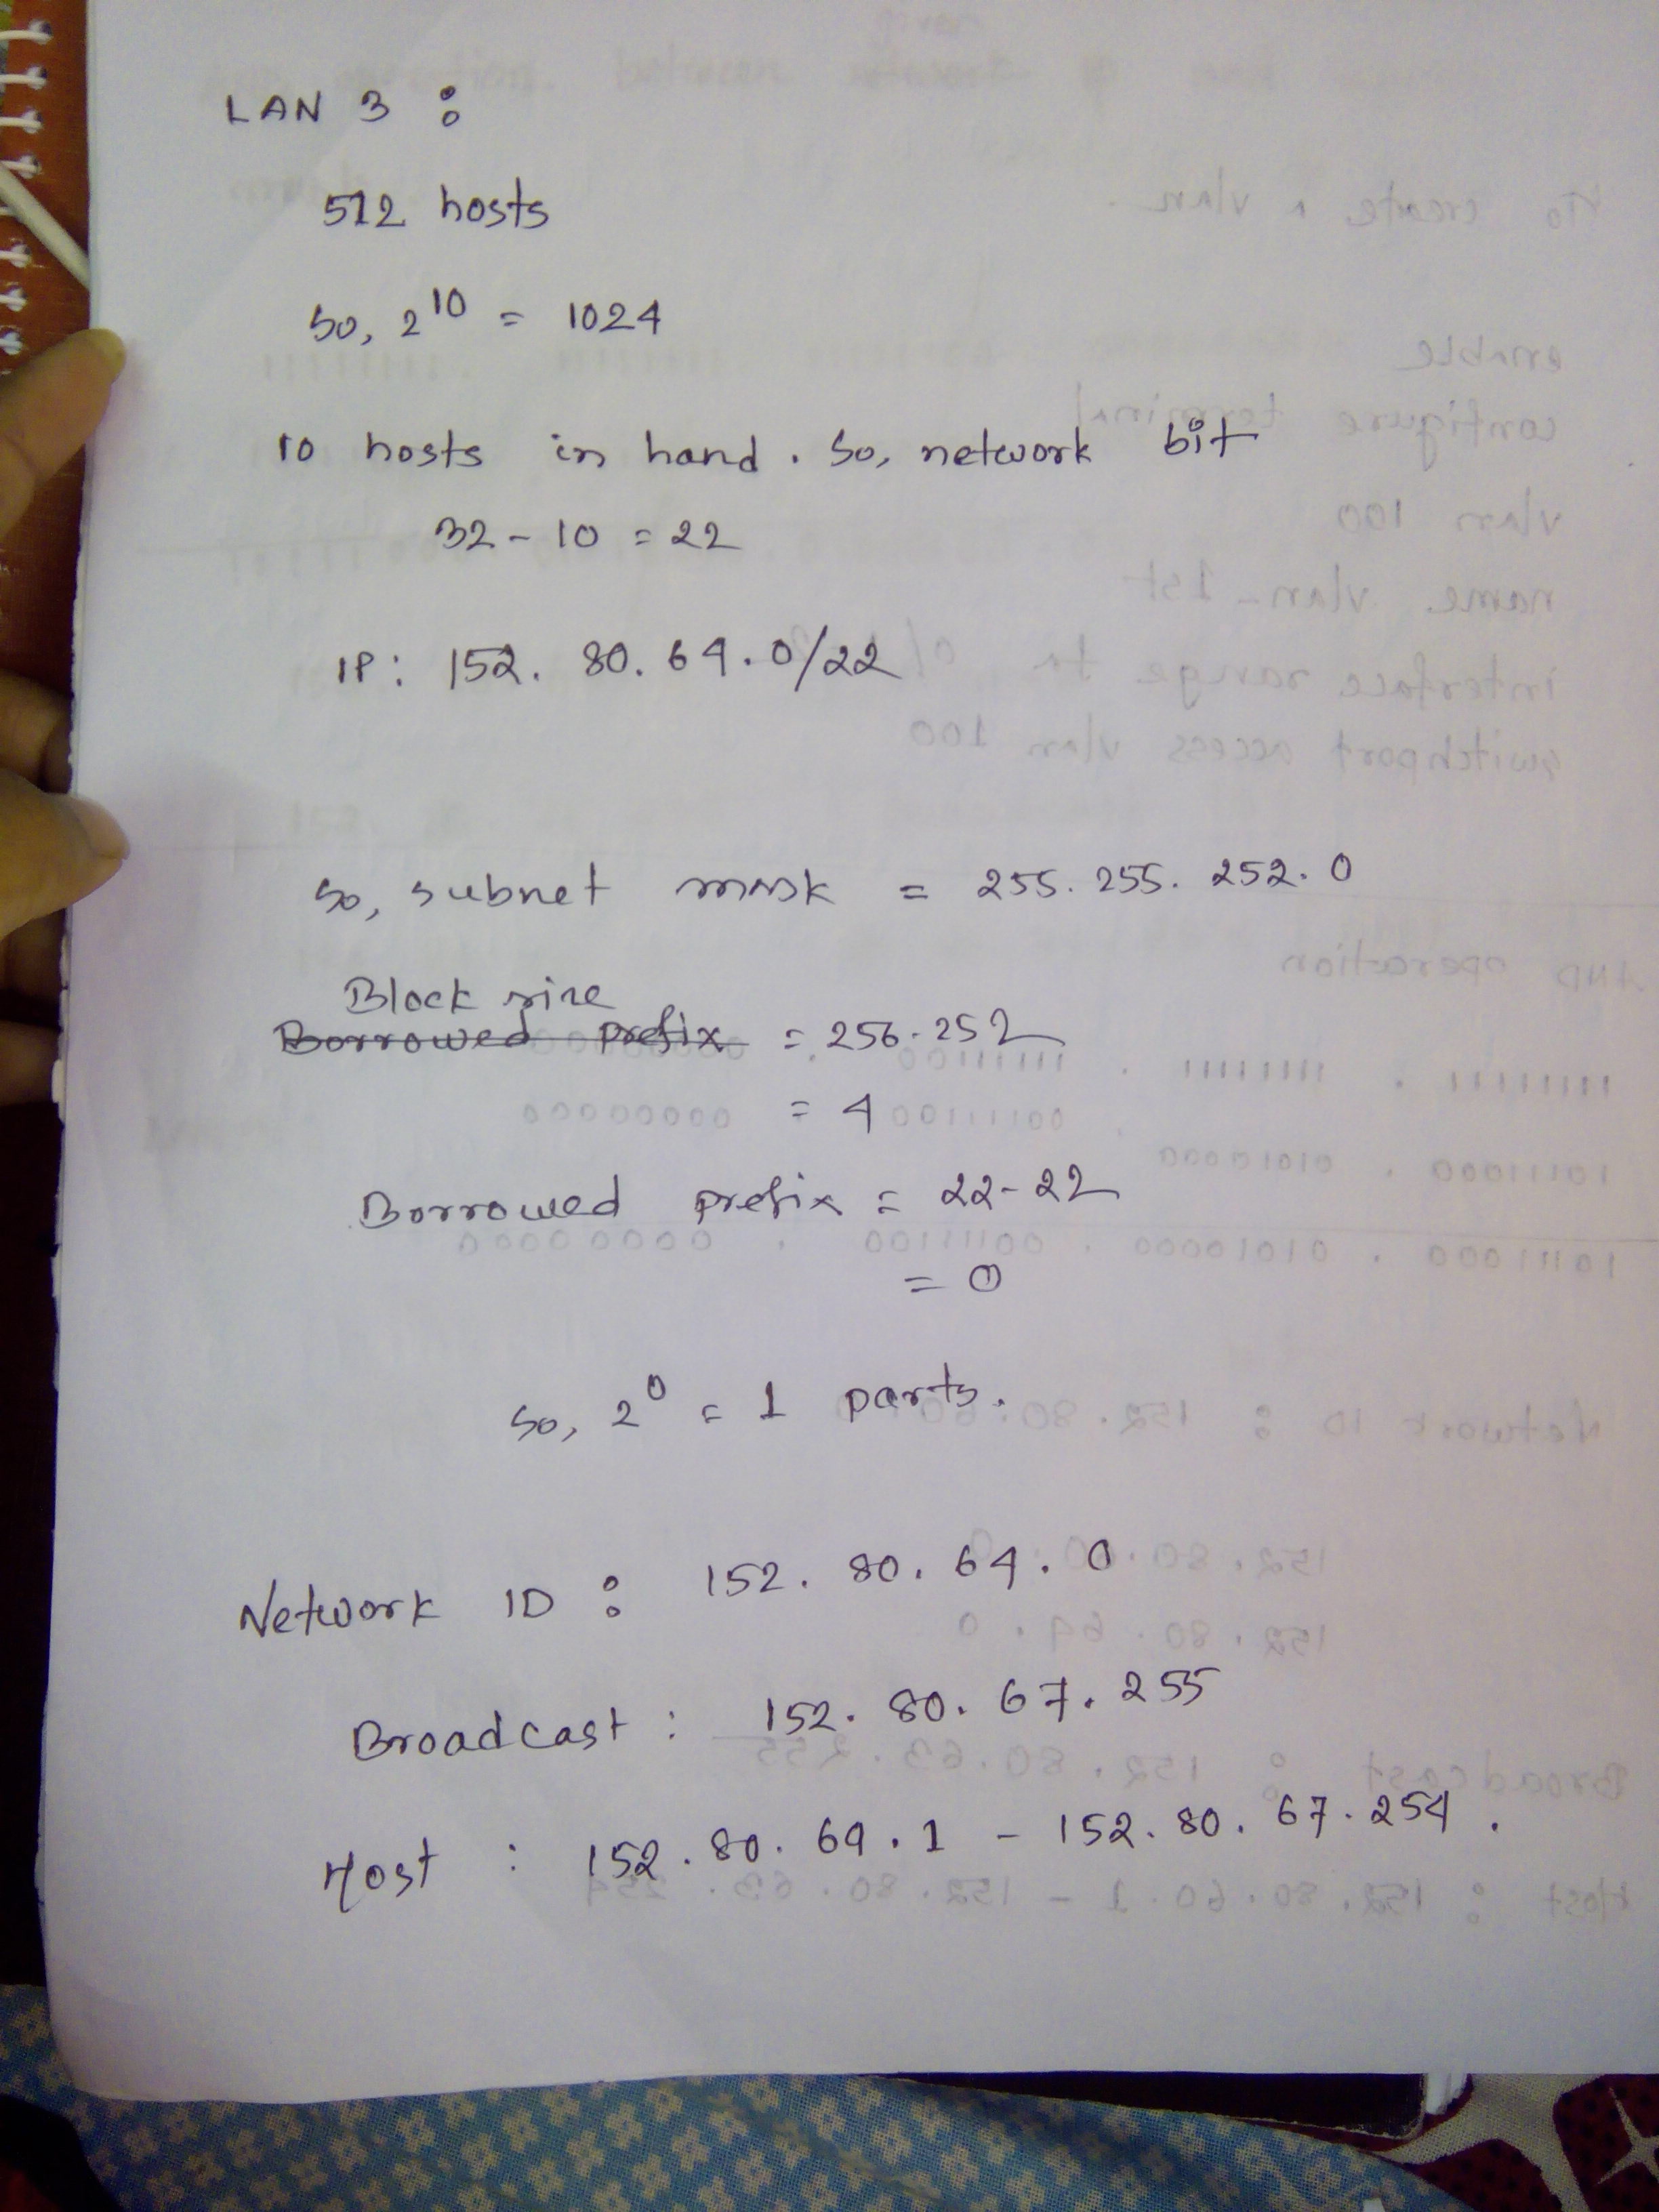 LAN 3 :
512 hosts
So, 2^10 = 1024
10 hosts in hand. So, network bit
32 - 10 = 22
IP: 152. 80. 64. 0/22
So, subnet mask = 255. 255. 252. 0
Block size
Borrowed prefix = 256-252
= 4
Borrowed prefix = 22-22
= 0
So, 2^0 = 1 parts.
Network ID : 152. 80. 64. 0
Broadcast : 152. 80. 67. 255
Host : 152. 80. 64. 1 - 152. 80. 67. 254.